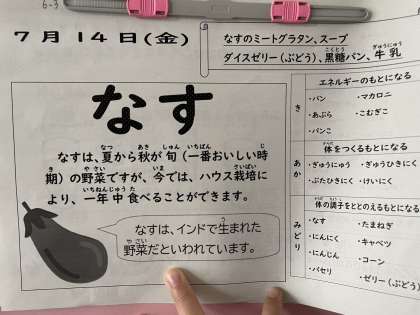 7月14日(金)
なすのミートグラタン、スープ
ダイスゼリー(ぶどう)、黒糖パン、牛乳
なす
なすは、夏から秋が旬(一番おいしい時
期)の野菜ですが、今では、ハウス栽培に
より、一年中食べることができます。
なすは、インドで生まれた
野菜だといわれています。
き
エネルギーのもとになる
・パン ・マカロニ
・あぶら ・こむぎこ
・パンこ
あか
体をつくるもとになる
・ぎゅうにゅう ・ぎゅうひきにく
・ぶたひきにく ・けいにく
みどり
体の調子をととのえるもとになる
・なす ・たまねぎ
・にんにく ・キャベツ
・にんじん ・コーン
・パセリ ・ゼリー(ぶどう)